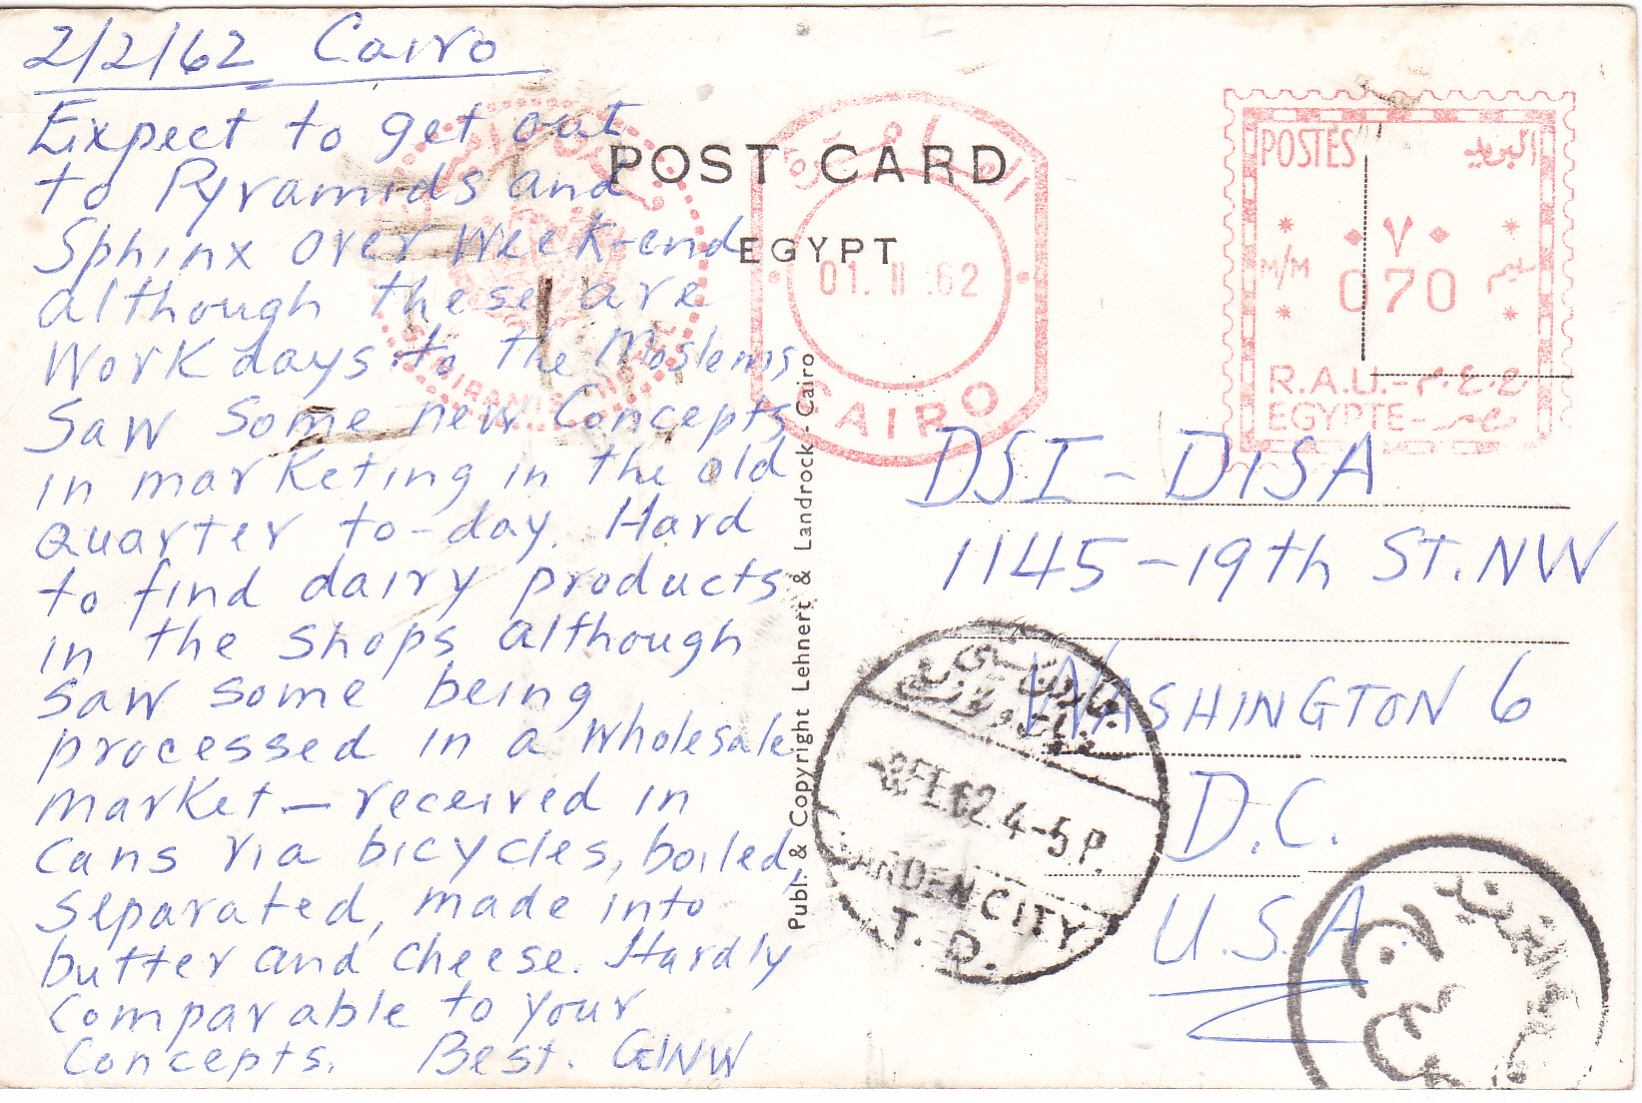 2/2/62 Cairo
Expect to get out
to Pyramids and
Sphinx over Week-end
although these are
Work days to the Moslems
Saw some new Concepts
in marketing in the old
Quarter to-day. Hard
to find dairy products
in the shops although
saw some being
processed in a wholesale
market — received in
Cans via bicycles, boiled,
separated, made into
butter and cheese. Hardly
Comparable to your
Concepts. Best. GWW
POST CARD
EGYPT
Publ. & Copyright Lehnert & Landrock - Cairo
القاهرة
01. II .62
CAIRO
POSTES البريد
٧٠
M/M 070 مليم
R.A.U.-ج.ع.م
EGYPTE-مصر
DSI - DISA
1145-19th St. NW
WASHINGTON 6
D.C.
U.S.A.
FE.62.4-5P.
GARDEN CITY
T. D.